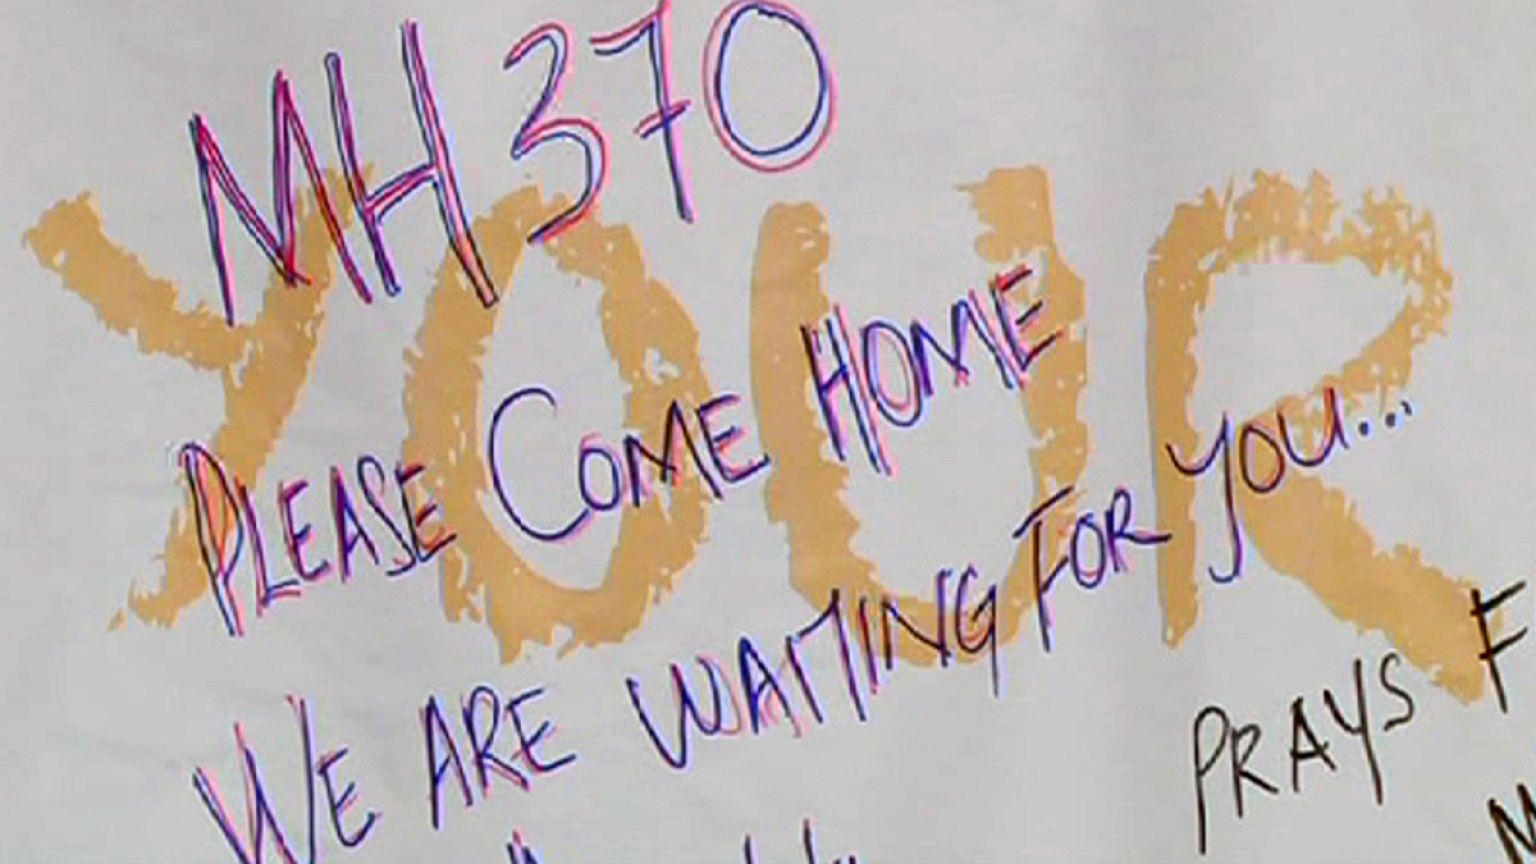 MH370
YOUR
PLEASE COME HOME
WE ARE WAITING FOR YOU...
PRAYS F